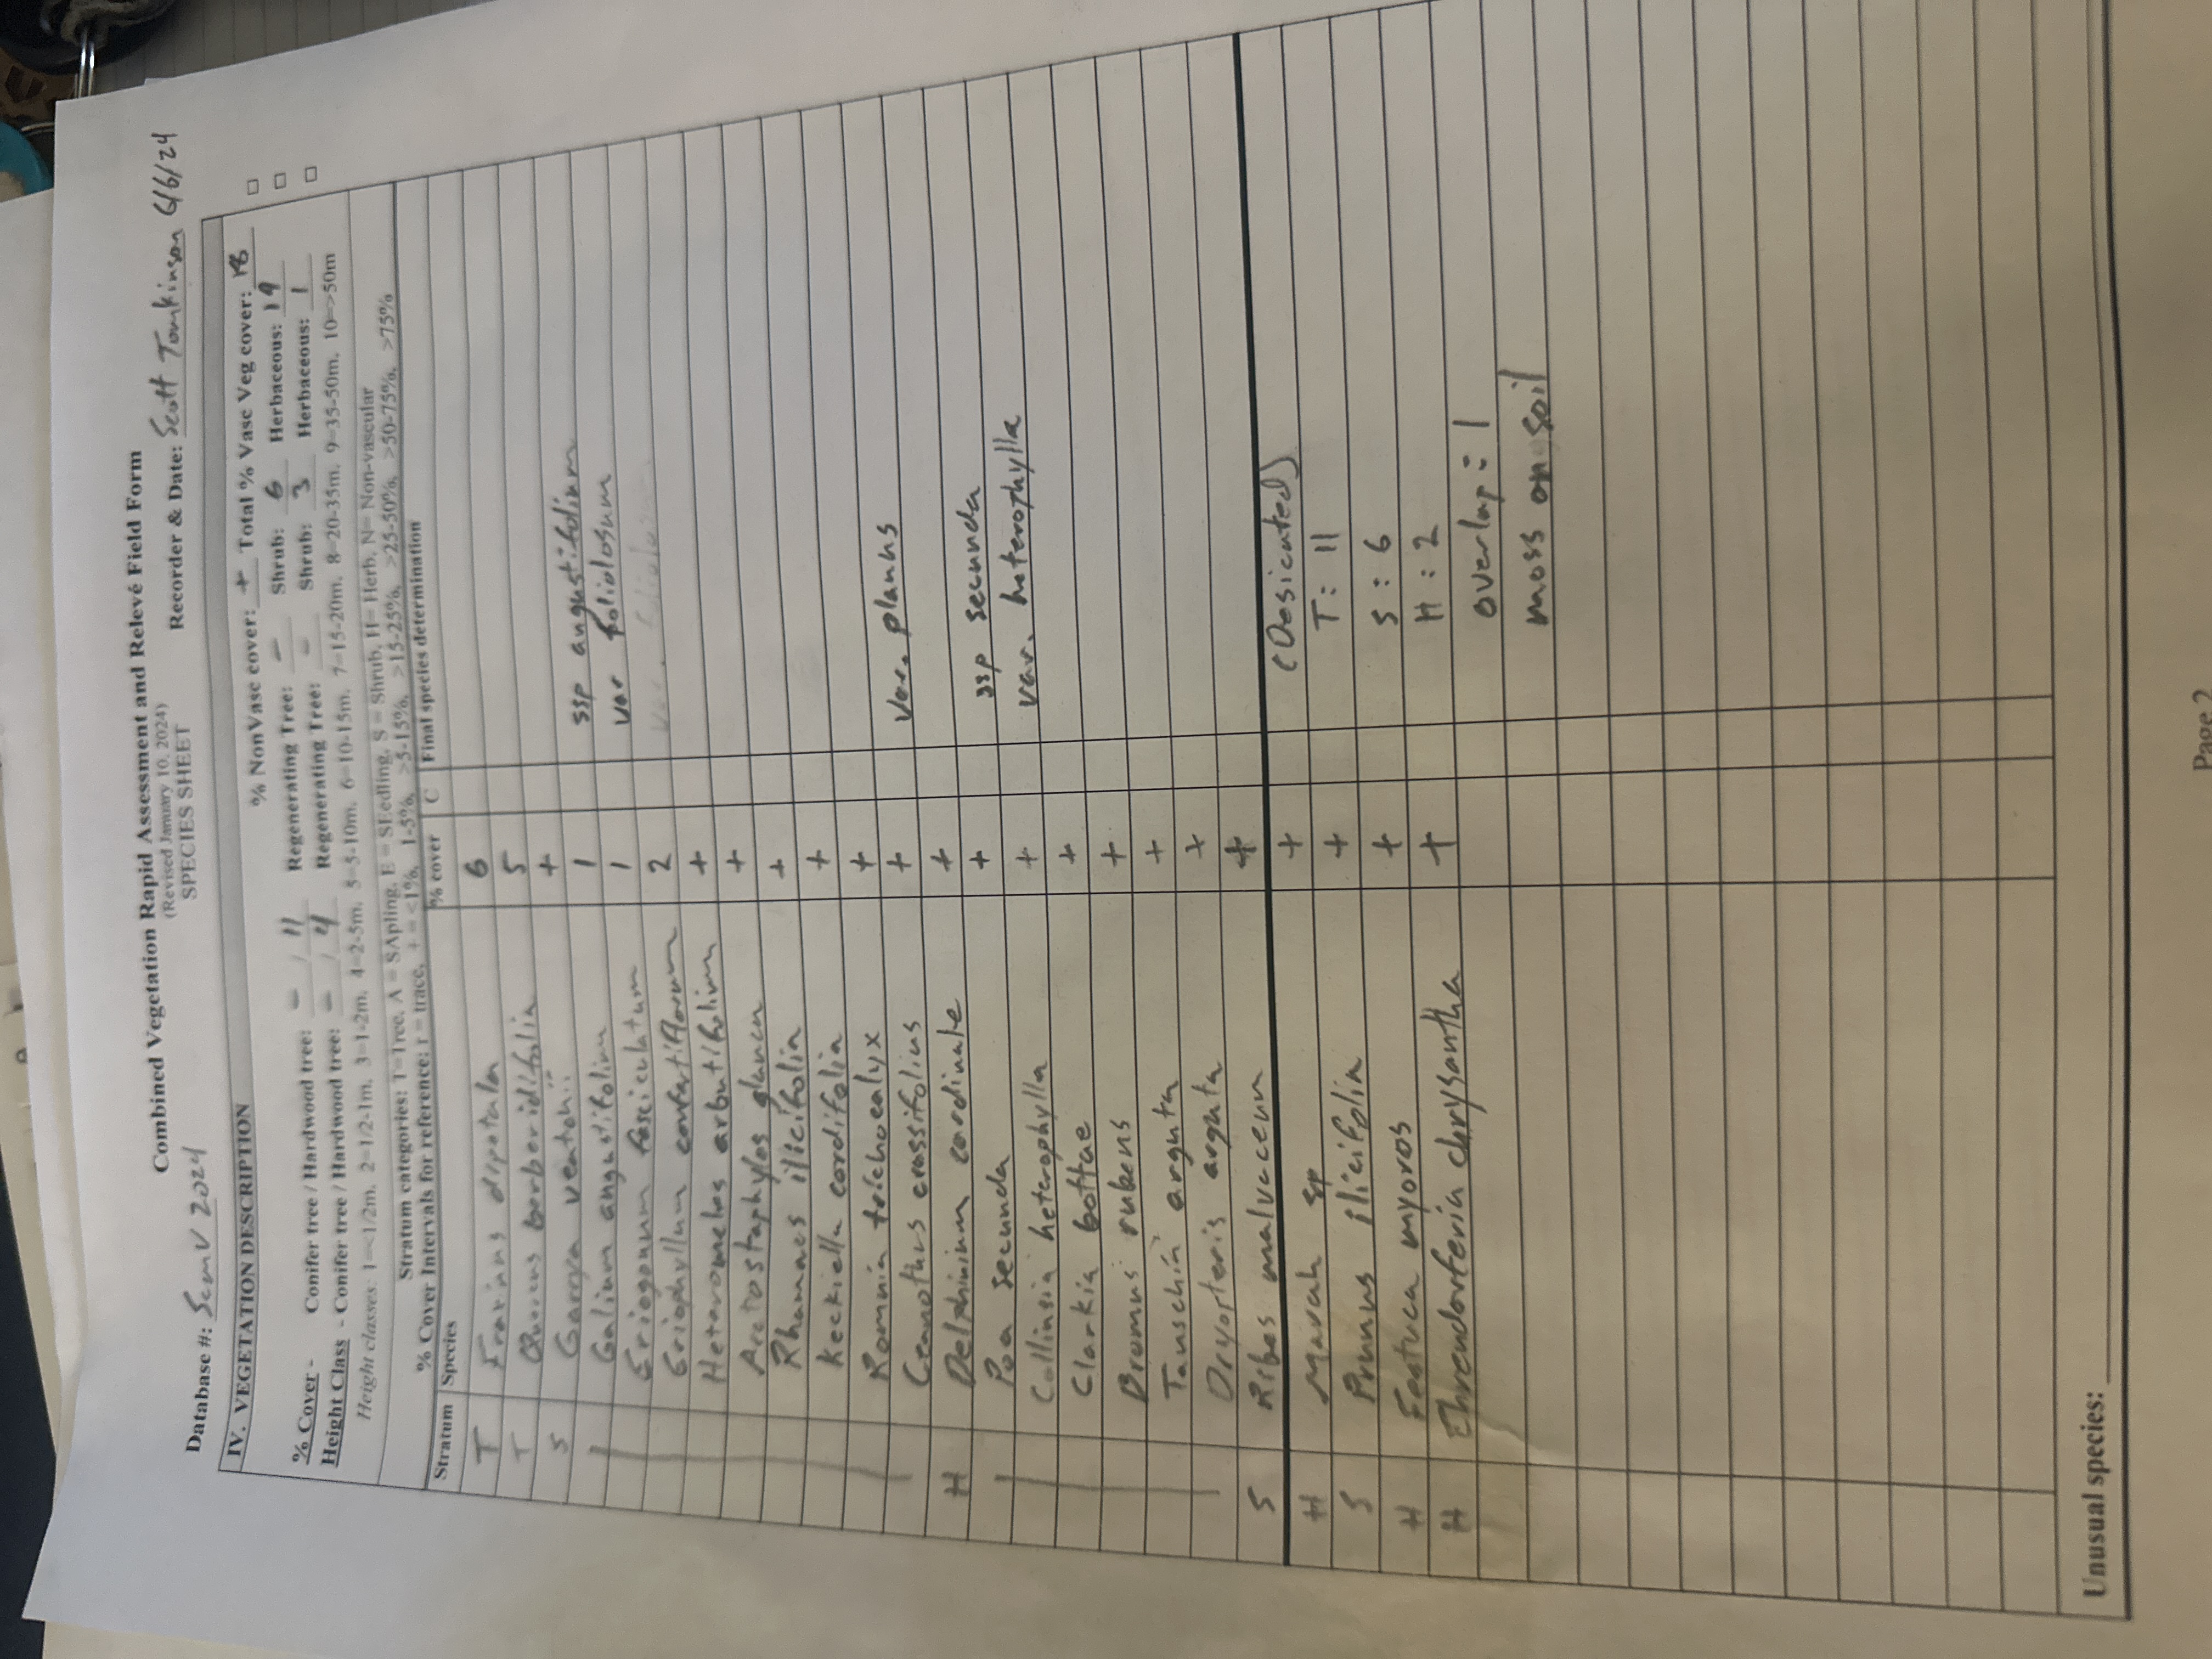 Combined Vegetation Rapid Assessment and Relevé Field Form
(Revised January 10, 2024)
SPECIES SHEET
Database #: SCMV 2024 Recorder & Date: Scott Tomkinson 6/6/24
IV. VEGETATION DESCRIPTION
% NonVasc cover: + Total % Vasc Veg cover: 18 □
% Cover - Conifer tree / Hardwood tree: - / 11 Regenerating Tree: - Shrub: 6 Herbaceous: 19 □
Height Class - Conifer tree / Hardwood tree: - / 4 Regenerating Tree: - Shrub: 3 Herbaceous: 1 □
Height classes: 1=<1/2m, 2=1/2-1m, 3=1-2m, 4=2-5m, 5=5-10m, 6=10-15m, 7=15-20m, 8=20-35m, 9=35-50m, 10=>50m
Stratum categories: T=Tree, A = SApling, E = SEedling, S = Shrub, H= Herb, N= Non-vascular
% Cover Intervals for reference: r = trace, + = <1%, 1-5%, >5-15%, >15-25%, >25-50%, >50-75%, >75%
Stratum Species % cover C Final species determination
T Fraxinus dipetala 6
T Quercus berberidifolia 5
S Garrya veatchii +
Galium angustifolium 1 ssp angustifolium
Eriogonum fasciculatum 1 var foliolosum
Eriophyllum confertiflorum 2
Heteromeles arbutifolium +
Arctostaphylos glauca +
Rhamnus ilicifolia +
Keckiella cordifolia +
Romnia trichocalyx +
Ceanothus crassifolius + var. planus
H Delphinium cardinale +
Poa secunda + ssp secunda
Collinsia heterophylla + var. heterophylla
Clarkia bottae +
Bromus rubens +
Tauschia arguta +
Dryopteris arguta +
S Ribes malvaceum +
H Marah sp + (Desicated)
S Prunus ilicifolia + T: 11
H Festuca myoros + S: 6
H Ehrendorferia chrysantha + H: 2
overlap: 1
moss on soil
Unusual species:
Page 2